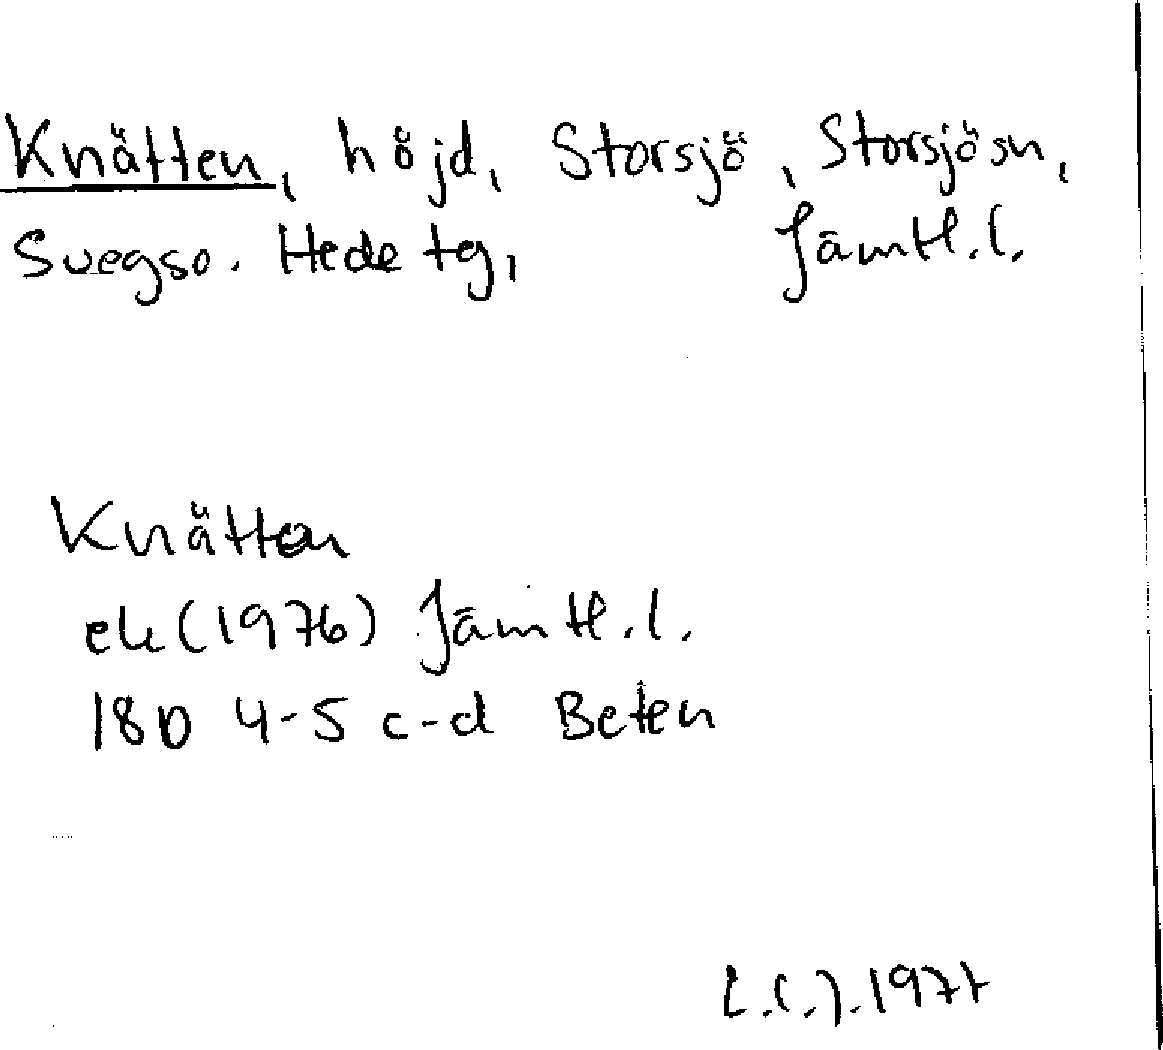 Knätten, höjd, Storsjö, Storsjösn,
Svegso. Hede tg, Jämtl.l.
Knätten
ek (1976) Jämtl.l.
18D 4-5 c-d Beten
1977